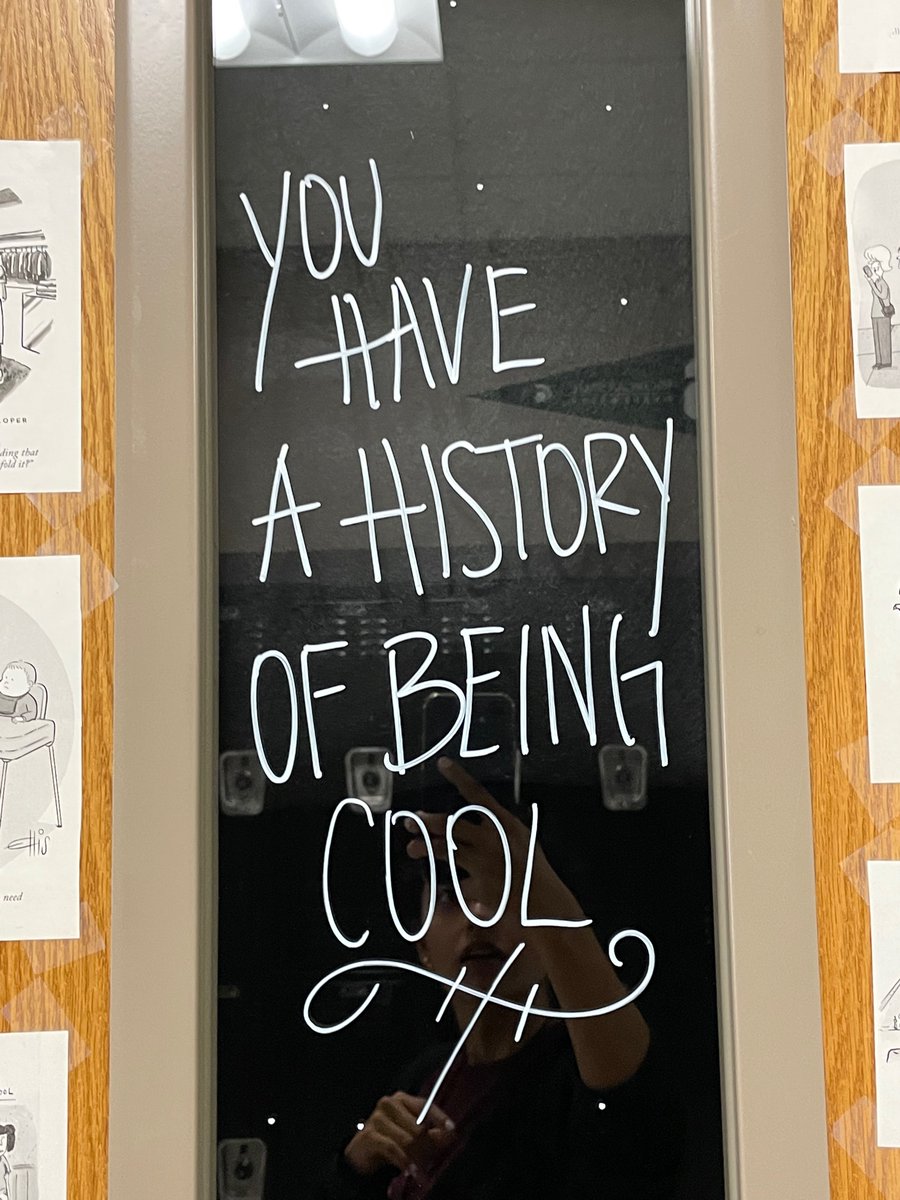 YOU
HAVE
A HISTORY
OF BEING
COOL
OPER
ding that
fold it?"
EHis
need
OOL